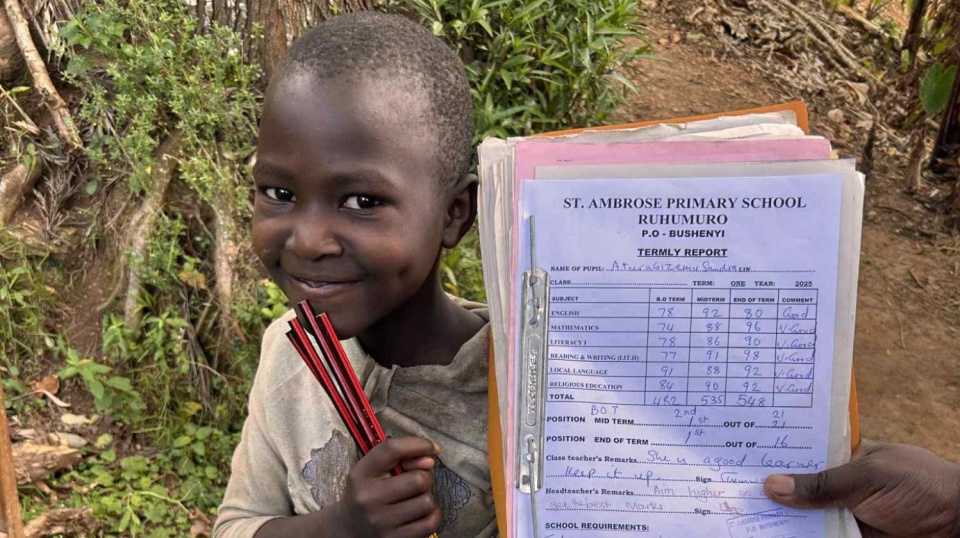 ST. AMBROSE PRIMARY SCHOOL
RUHUMURO
P.O - BUSHENYI
TERMLY REPORT
NAME OF PUPIL: LIN
CLASS: TERM: ONE YEAR: 2025
SUBJECT B.O TERM MIDTERM END OF TERM COMMENT
ENGLISH 78 92 80 Good
MATHEMATICS 74 88 96 V-Good
LITERACY I 78 86 90 V-Good
READING & WRITING (LIT.II) 77 91 98 V-Good
LOCAL LANGUAGE 91 88 92 V-Good
RELIGIOUS EDUCATION 84 90 92 V-Good
TOTAL 482 535 548
B.O.T 2nd 21
POSITION MID TERM 1st OUT OF 21
POSITION END OF TERM 1st OUT OF 16
Class teacher's Remarks She is a good learner
Keep it up. Sign
Headteacher's Remarks Aim higher
Marks Sign
SCHOOL REQUIREMENTS: